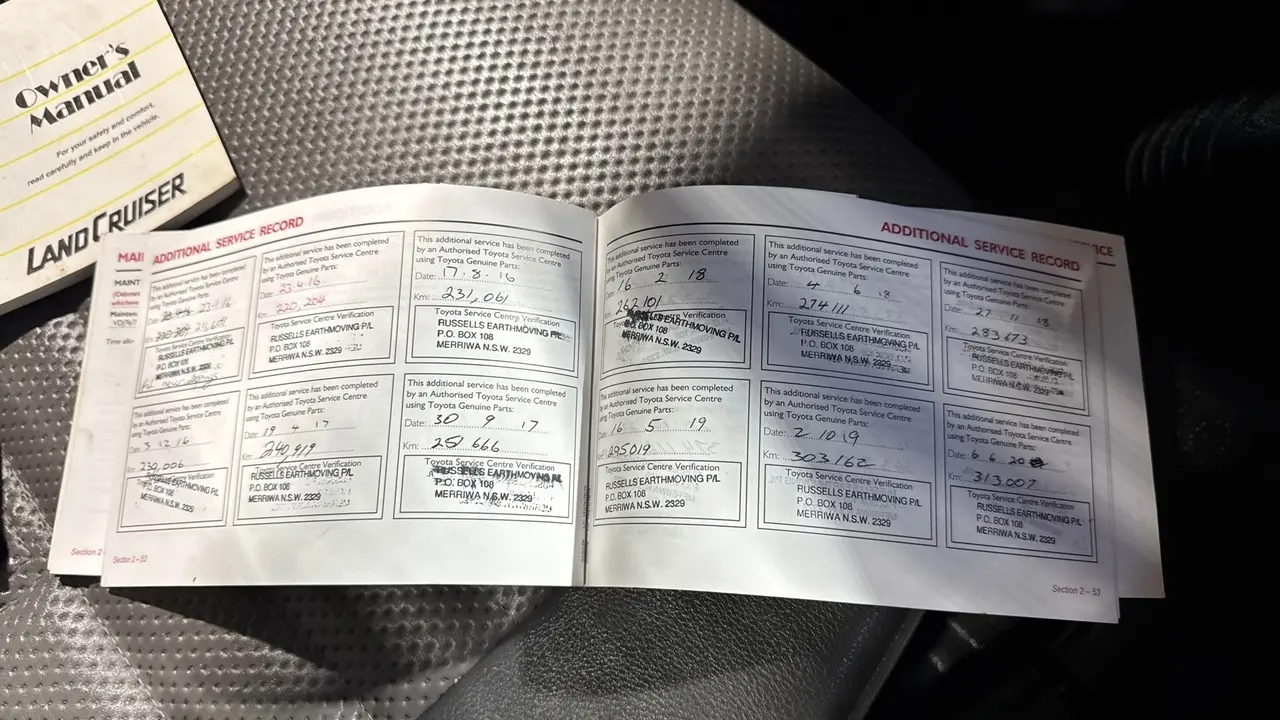 Owner's
Manual
For your safety and comfort,
read carefully and keep in the vehicle.
LAND CRUISER
MAI
MAINT
Section 2
ADDITIONAL SERVICE RECORD
This additional service has been completed
by an Authorised Toyota Service Centre
using Toyota Genuine Parts:
Date:
Km:
Toyota Service Centre Verification
RUSSELLS EARTHMOVING P/L
P.O. BOX 108
MERRIWA N.S.W. 2329
This additional service has been completed
by an Authorised Toyota Service Centre
using Toyota Genuine Parts:
Date: 23.4.16.
Km: 220,204
Toyota Service Centre Verification
RUSSELLS EARTHMOVING P/L
P.O. BOX 108
MERRIWA N.S.W. 2329
This additional service has been completed
by an Authorised Toyota Service Centre
using Toyota Genuine Parts:
Date: 17.8.16
Km: 231,061
Toyota Service Centre Verification
RUSSELLS EARTHMOVING P/L
P.O. BOX 108
MERRIWA N.S.W. 2329
This additional service has been completed
by an Authorised Toyota Service Centre
using Toyota Genuine Parts:
Date: 3 12 16
Km: 230,006
Toyota Service Centre Verification
RUSSELLS EARTHMOVING P/L
P.O. BOX 108
MERRIWA N.S.W. 2329
This additional service has been completed
by an Authorised Toyota Service Centre
using Toyota Genuine Parts:
Date: 19 4 17
Km: 240,919
Toyota Service Centre Verification
RUSSELLS EARTHMOVING P/L
P.O. BOX 108
MERRIWA N.S.W. 2329
This additional service has been completed
by an Authorised Toyota Service Centre
using Toyota Genuine Parts:
Date: 30 9 17
Km: 251 666
Toyota Service Centre Verification
RUSSELLS EARTHMOVING P/L
P.O. BOX 108
MERRIWA N.S.W. 2329
Section 2 – 52
ADDITIONAL SERVICE RECORD
This additional service has been completed
by an Authorised Toyota Service Centre
using Toyota Genuine Parts:
Date: 16 2 18
262101
RUSSELLS EARTHMOVING P/L
P.O. BOX 108
MERRIWA N.S.W. 2329
This additional service has been completed
by an Authorised Toyota Service Centre
using Toyota Genuine Parts:
Date: 4 6 18
Km: 274111
Toyota Service Centre Verification
RUSSELLS EARTHMOVING P/L
P.O. BOX 108
MERRIWA N.S.W. 2329
This additional service has been completed
by an Authorised Toyota Service Centre
using Toyota Genuine Parts:
Date: 27 11 18
Km: 283673
Toyota Service Centre Verification
RUSSELLS EARTHMOVING P/L
P.O. BOX 108
MERRIWA N.S.W. 2329
This additional service has been completed
by an Authorised Toyota Service Centre
using Toyota Genuine Parts:
Date: 16 5 19
295019
Toyota Service Centre Verification
RUSSELLS EARTHMOVING P/L
P.O. BOX 108
MERRIWA N.S.W. 2329
This additional service has been completed
by an Authorised Toyota Service Centre
using Toyota Genuine Parts:
Date: 2 10 19
Km: 303162
Toyota Service Centre Verification
RUSSELLS EARTHMOVING P/L
P.O. BOX 108
MERRIWA N.S.W. 2329
This additional service has been completed
by an Authorised Toyota Service Centre
using Toyota Genuine Parts:
Date: 6 6 20
Km: 313,007
Toyota Service Centre Verification
RUSSELLS EARTHMOVING P/L
P.O. BOX 108
MERRIWA N.S.W. 2329
Section 2 – 53
ICE